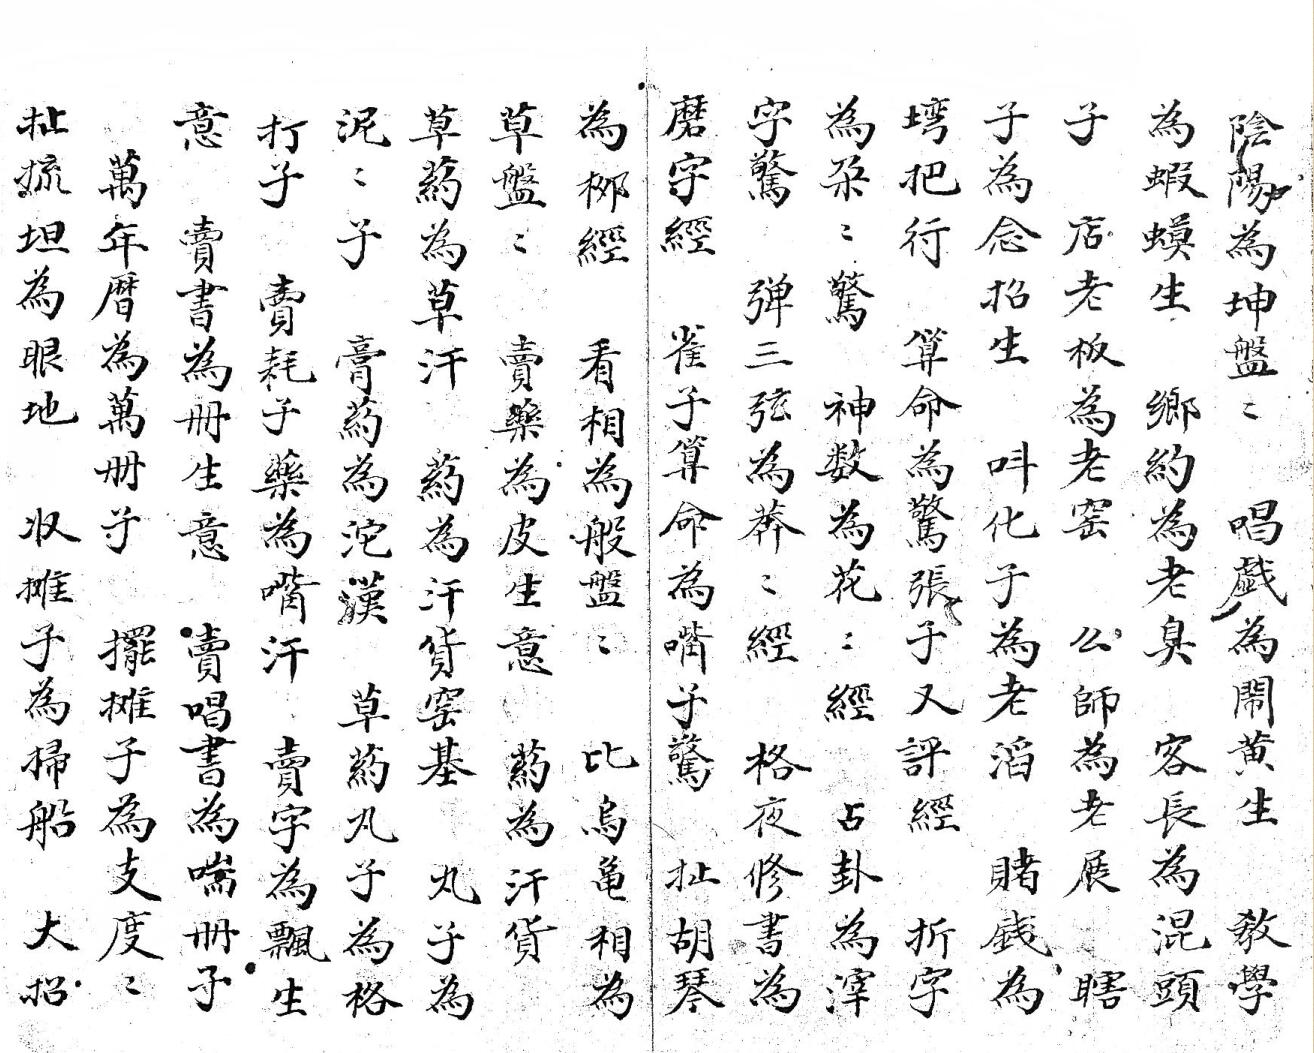 陰陽為坤盤〻　唱戲為鬧黃生　教學
為蝦蟆生　鄉約為老臭　客長為混頭
子　店老板為老窑　公師為老展　瞎
子為念招生　叫化子為老滔　賭錢為
塆把行　算命為驚張子又評經　折字
為朶〻驚　神数為花〻經　占卦為滓
字驚　弹三弦為莽〻經　格夜修書為
磨字經　雀子算命為嘴子驚　扯胡琴
為栁經　看相為般盤〻　比烏龜相為
草盤〻　賣藥為皮生意　葯為汗貨
草葯為草汗　葯為汗貨窑基　丸子為
泥〻子　膏葯為沱漢　草葯丸子為格
打子　賣耗子藥為嘴汗　賣字為飄生
意　賣書為册生意　賣唱書為喘册子
萬年曆為萬册子　擺攤子為支度〻
扯㧌坦為眼地　收攤子為掃船　大招